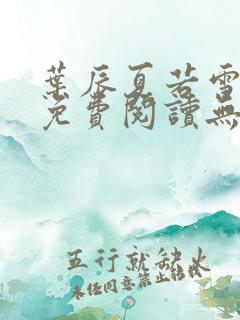 葉辰夏若雪
免費閱讀無
五行就缺火
未經同意禁止轉載